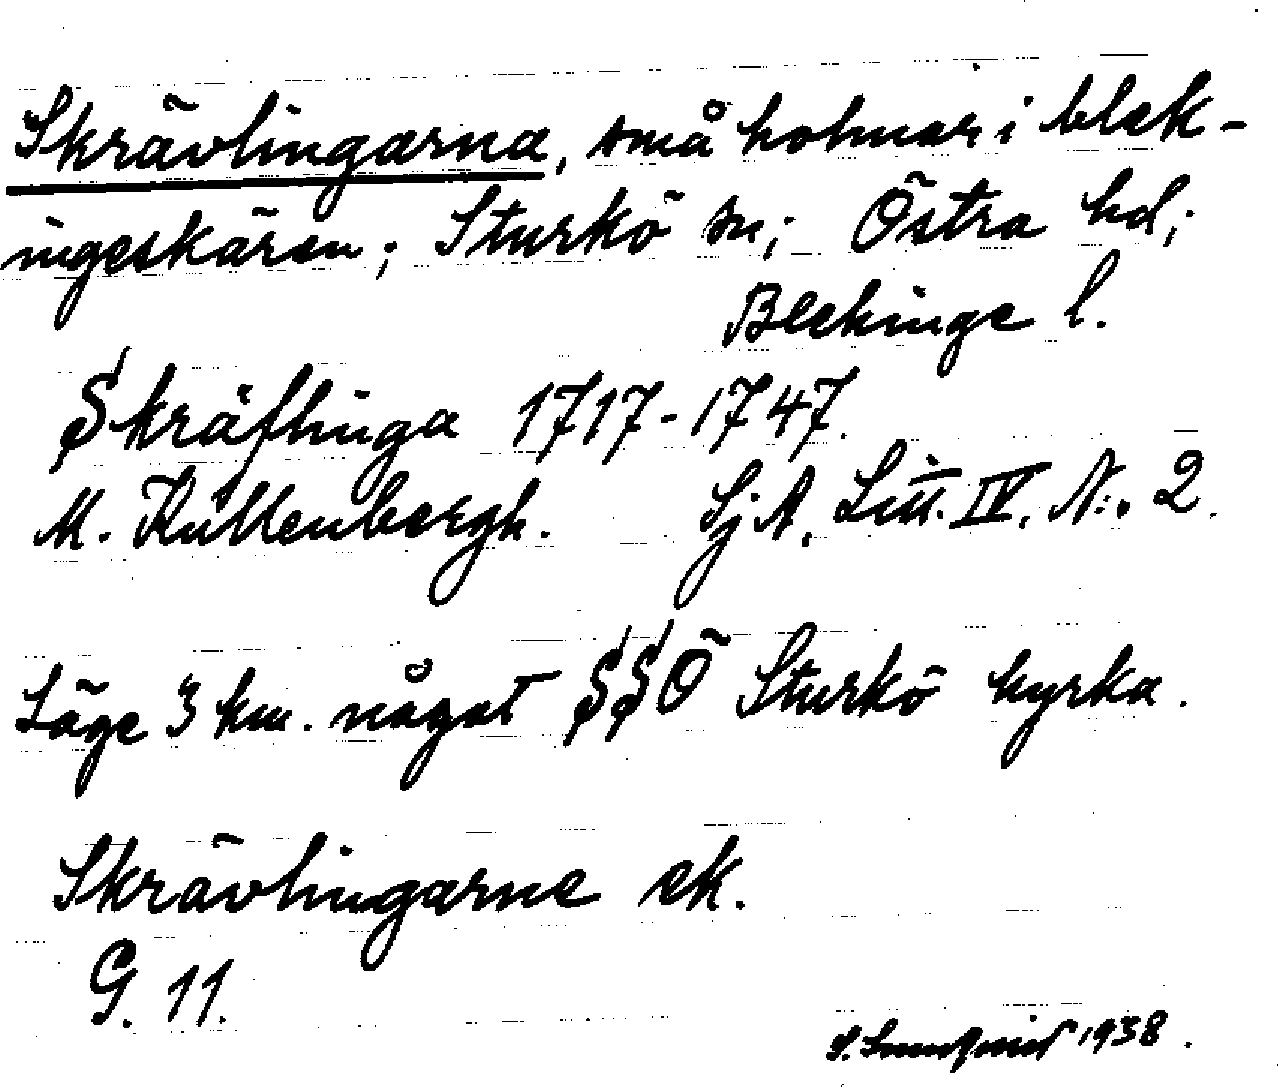 Skrävlingarna, små holmar i blek-
ingeskären; Sturkö sn; Östra hd;
Blekinge l.
Skräflinga 1717-1747.
M. Küllenbergh. SjA, Litt. IV, N:o 2.
Läge 3 km. något SSÖ Sturkö kyrka.
Skrävlingarne ek.
G. 11.
1938.